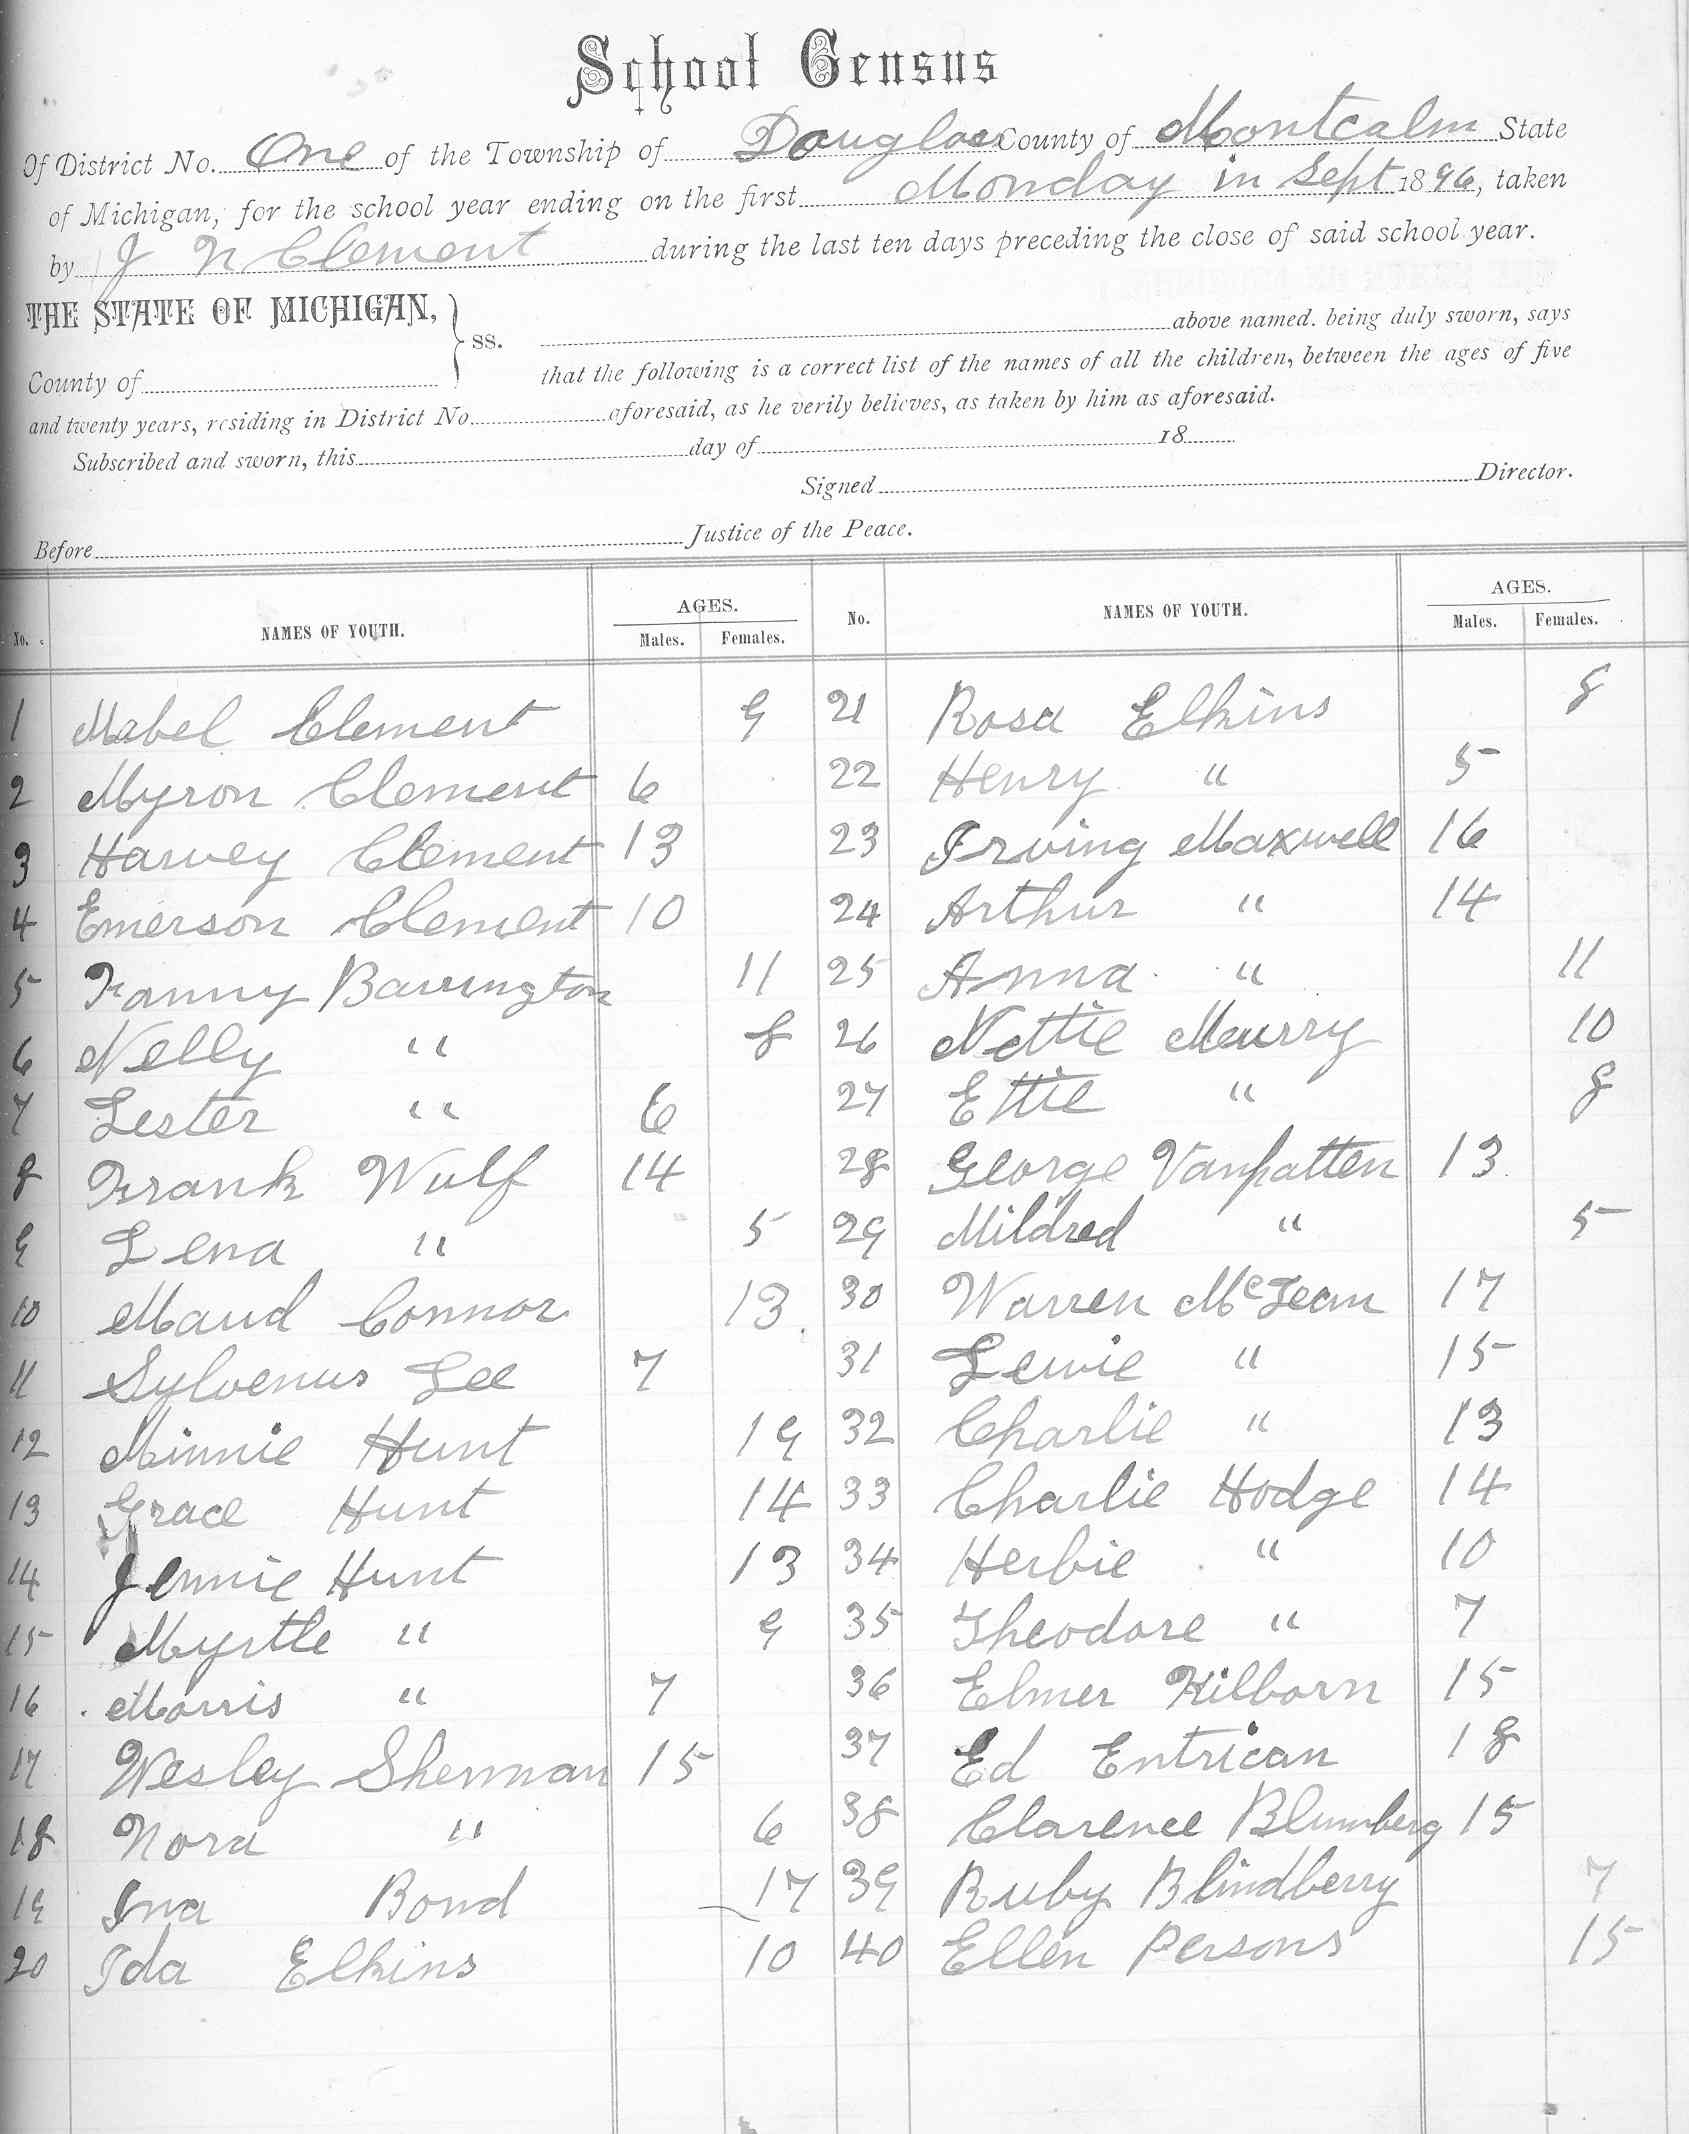 School Census
Of District No. One of the Township of Douglass County of Montcalm State
of Michigan, for the school year ending on the first Monday in Sept 1896, taken
by J N Clement during the last ten days preceding the close of said school year.
THE STATE OF MICHIGAN, } ss.
above named. being duly sworn, says
County of
that the following is a correct list of the names of all the children, between the ages of five
and twenty years, residing in District No. aforesaid, as he verily believes, as taken by him as aforesaid.
Subscribed and sworn, this day of 18
Signed Director.
Before Justice of the Peace.
No. NAMES OF YOUTH. AGES. Males. Females. No. NAMES OF YOUTH. AGES. Males. Females.
1 Mabel Clement 9 21 Rosa Elkins 8
2 Myron Clement 6 22 Henry " 5
3 Harvey Clement 13 23 Irving Maxwell 16
4 Emerson Clement 10 24 Arthur " 14
5 Fanny Barrington 11 25 Anna " 11
6 Nelly " 8 26 Nettie Murry 10
7 Lester " 6 27 Ettie " 8
8 Frank Wulf 14 28 George Vanpatten 13
9 Lena " 5 29 Mildred " 5
10 Maud Connor 13 30 Warren McLean 17
11 Sylvenus Lee 7 31 Lewie " 15
12 Minnie Hunt 19 32 Charlie " 13
13 Grace Hunt 14 33 Charlie Hodge 14
14 Jennie Hunt 13 34 Herbie " 10
15 Myrtle " 9 35 Theodore " 7
16 Morris " 7 36 Elmer Kilborn 15
17 Wesley Sherman 15 37 Ed Entrican 18
18 Nora " 6 38 Clarence Blumberg 15
19 Ina Bond 17 39 Ruby Blindberry 7
20 Ida Elkins 10 40 Ellen Persons 15